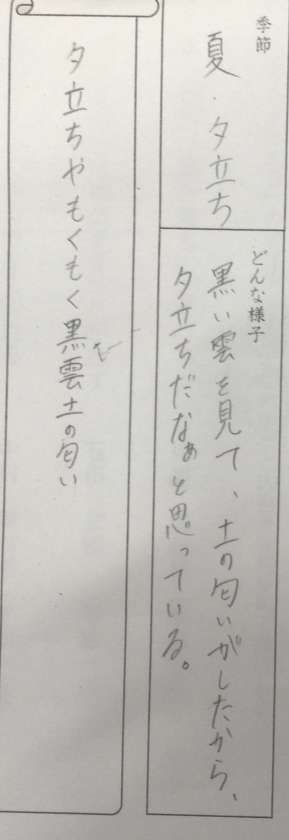 季節
夏・夕立ち
どんな様子
黒い雲を見て、土の匂いがしたから、
夕立ちだなぁと思っている。
夕立ちやもくもく黒雲土の匂い